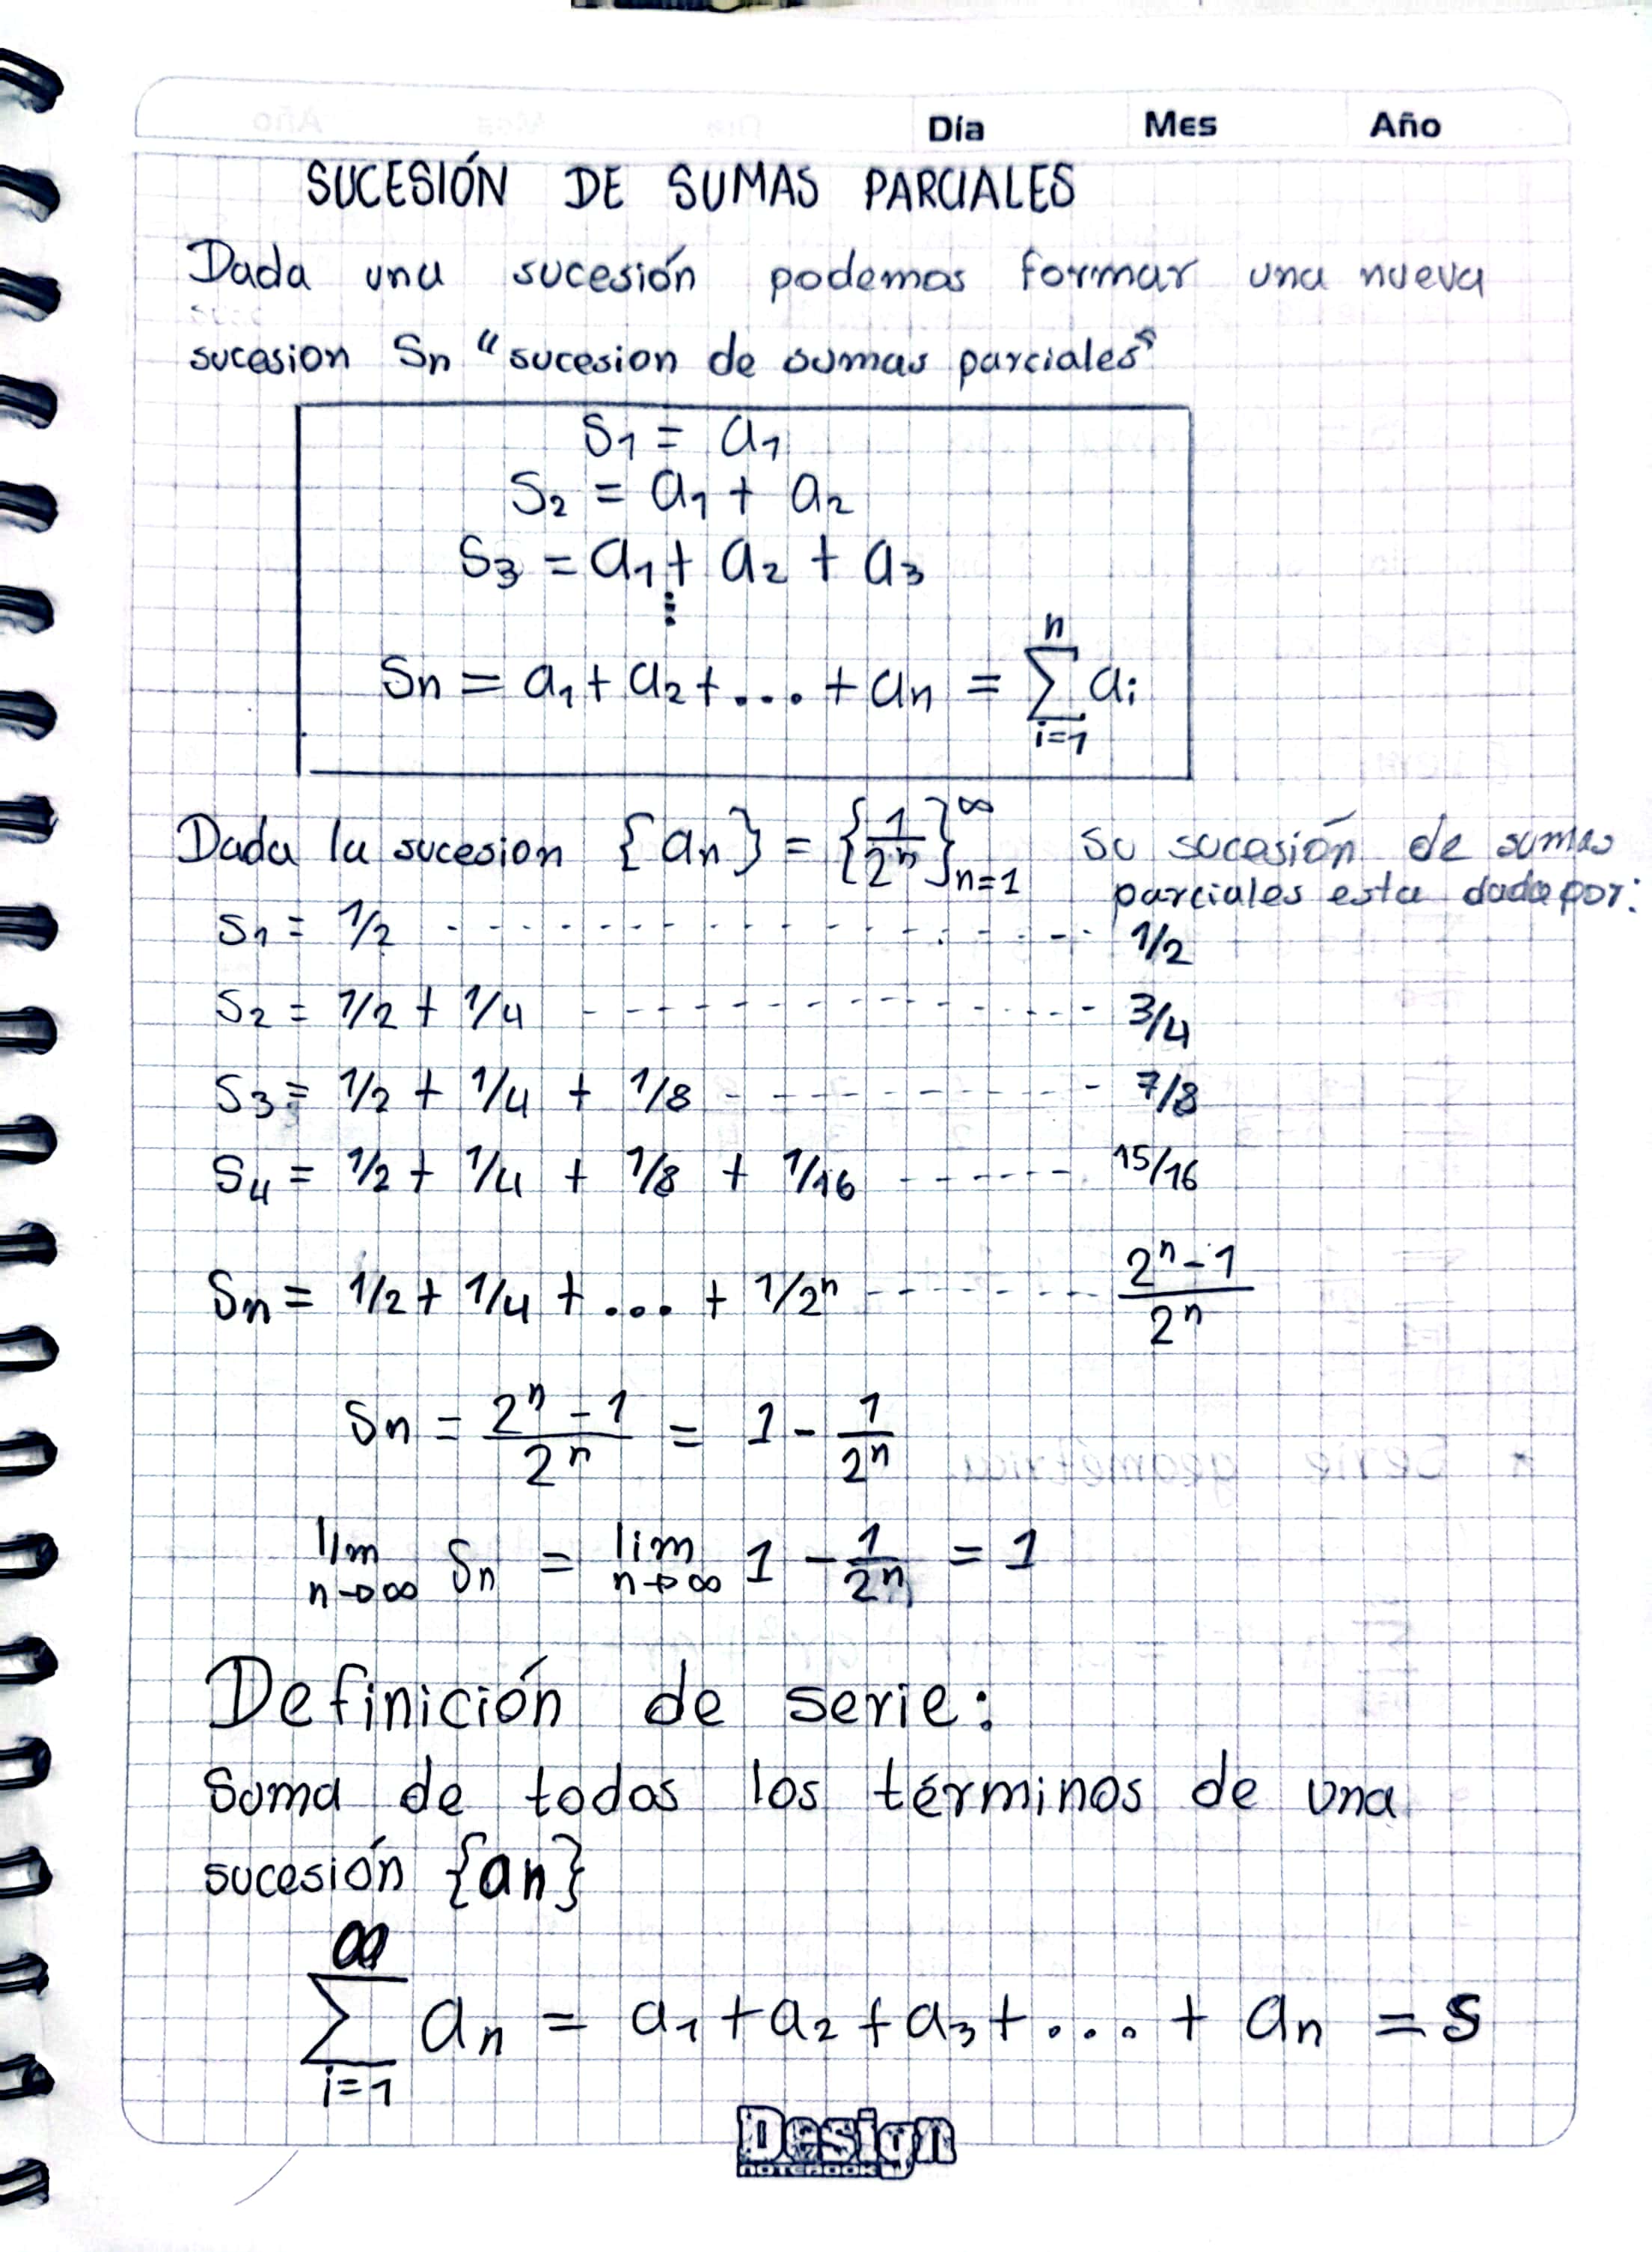 Día Mes Año
SUCESIÓN DE SUMAS PARCIALES
Dada una sucesión podemos formar una nueva
sucesion Sn "sucesion de sumas parciales"
S₁ = a₁
S₂ = a₁ + a₂
S₃ = a₁ + a₂ + a₃
⋮
Sn = a₁ + a₂ + ... + an = ∑_{i=1}^{n} ai
Dada la sucesion {an} = {1/2ⁿ}_{n=1}^{∞} su sucesión de sumas
parciales esta dada por:
S₁ = 1/2 - - - - - - - - - - 1/2
S₂ = 1/2 + 1/4 - - - - - - - - - - 3/4
S₃ = 1/2 + 1/4 + 1/8 - - - - - - - - 7/8
S₄ = 1/2 + 1/4 + 1/8 + 1/16 - - - - - - 15/16
Sn = 1/2 + 1/4 + ... + 1/2ⁿ - - - - - - - (2ⁿ - 1)/2ⁿ
Sn = (2ⁿ - 1)/2ⁿ = 1 - 1/2ⁿ
lim_{n→∞} Sn = lim_{n→∞} 1 - 1/2ⁿ = 1
Definición de serie:
Suma de todos los términos de una
sucesión {an}
∑_{i=1}^{∞} an = a₁ + a₂ + a₃ + .... + an = S
Design
NOTEBOOK